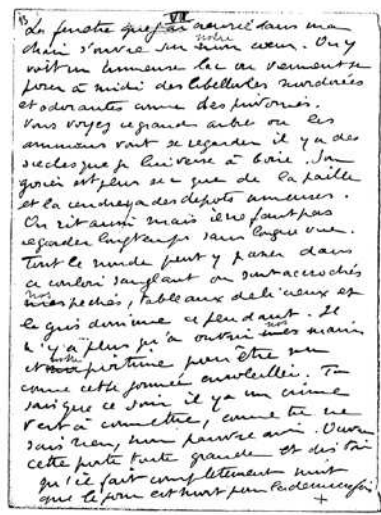 VII
93
La fenêtre que j'ai ouverte dans ma
chair s'ouvre sur mon notre cœur. On y
voit un immense lac où viennent se
poser à midi des libellules mordorées
et odorantes comme des pivoines.
Vous voyez ce grand arbre où les
animaux vont se regarder il y a des
siècles que je lui verse à boire. Son
gosier est plus sec que de la paille
et la cendre y a des dépôts immenses.
On rit aussi mais il ne faut pas
regarder longtemps sans longue vue.
Tout le monde peut y passer dans
ce couloir sanglant où sont accrochés
mes nos péchés, tableaux délicieux
le gris domine cependant. Il
n'y a plus qu'à ouvrir mes nos mains
et ma notre poitrine pour être nu
comme cette journée ensoleillée. Tu
sais que ce soir il y a un crime
vert à commettre, comme tu ne
sais rien, mon pauvre ami. Ouvre
cette porte toute grande et dis toi
qu'il fait complètement nuit
que le jour est mort pour la dernière fois
+